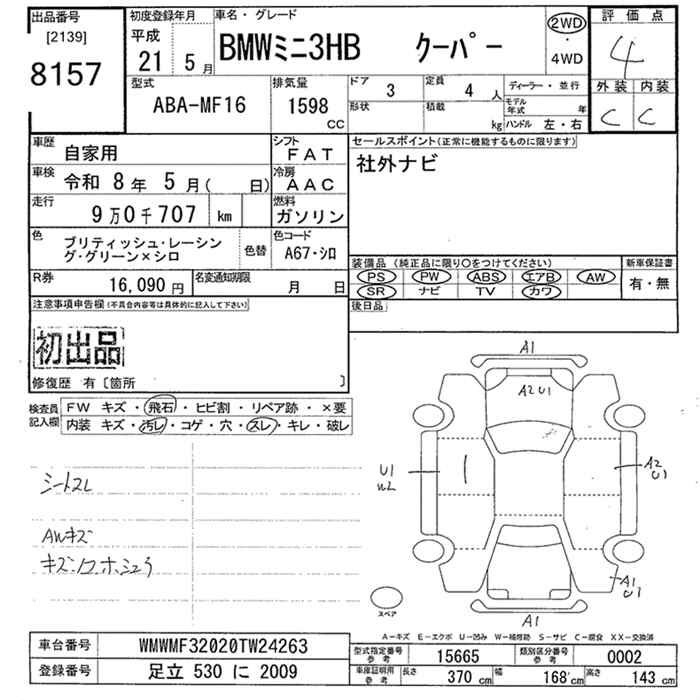 出品番号 初度登録年月 車名・グレード 評価点
[2139] 平成 BMWミニ3HB クーパー 2WD・4WD 4
8157 21 5月
型式 排気量 ドア 定員 ディーラー・並行 外装 内装
ABA-MF16 1598 CC 3 4人
形状 積載 kg モデル年式 年 C C
ハンドル 左・右
車歴 自家用 シフト FAT セールスポイント(正常に機能するものに限ります)
車検 令和 8年 5月( 日) 冷房 AAC 社外ナビ
走行 9万0千707 km 燃料 ガソリン
色 ブリティッシュ・レーシン 色替 色コード
グ・グリーン×シロ A67・シロ
装備品(純正品に限り○をつけてください) 新車保証書
PS PW ABS エアB AW 有・無
SR ナビ TV カワ
R券 16,090円 名変通知期限 月 日
後日品
注意事項申告欄(不具合内容等は具体的に記入して下さい)
初出品
修復歴 有〔箇所 〕
検査員記入欄 FW キズ・飛石・ヒビ割・リペア跡・×要
内装 キズ・汚レ・コゲ・穴・スレ・キレ・破レ
シートスレ
AWキズ
A1
A2 U1
U1
A2
U1
A1
U1
スペア
A1
A-キズ E-エクボ U-凹み W-補修跡 S-サビ C-腐食 XX-交換済
車台番号 WMWMF32020TW24263 型式指定番号 参考 15665 類別区分番号 参考 0002
登録番号 足立 530 に 2009 車庫証明用 参考 長さ 370cm 幅 168cm 高さ 143cm